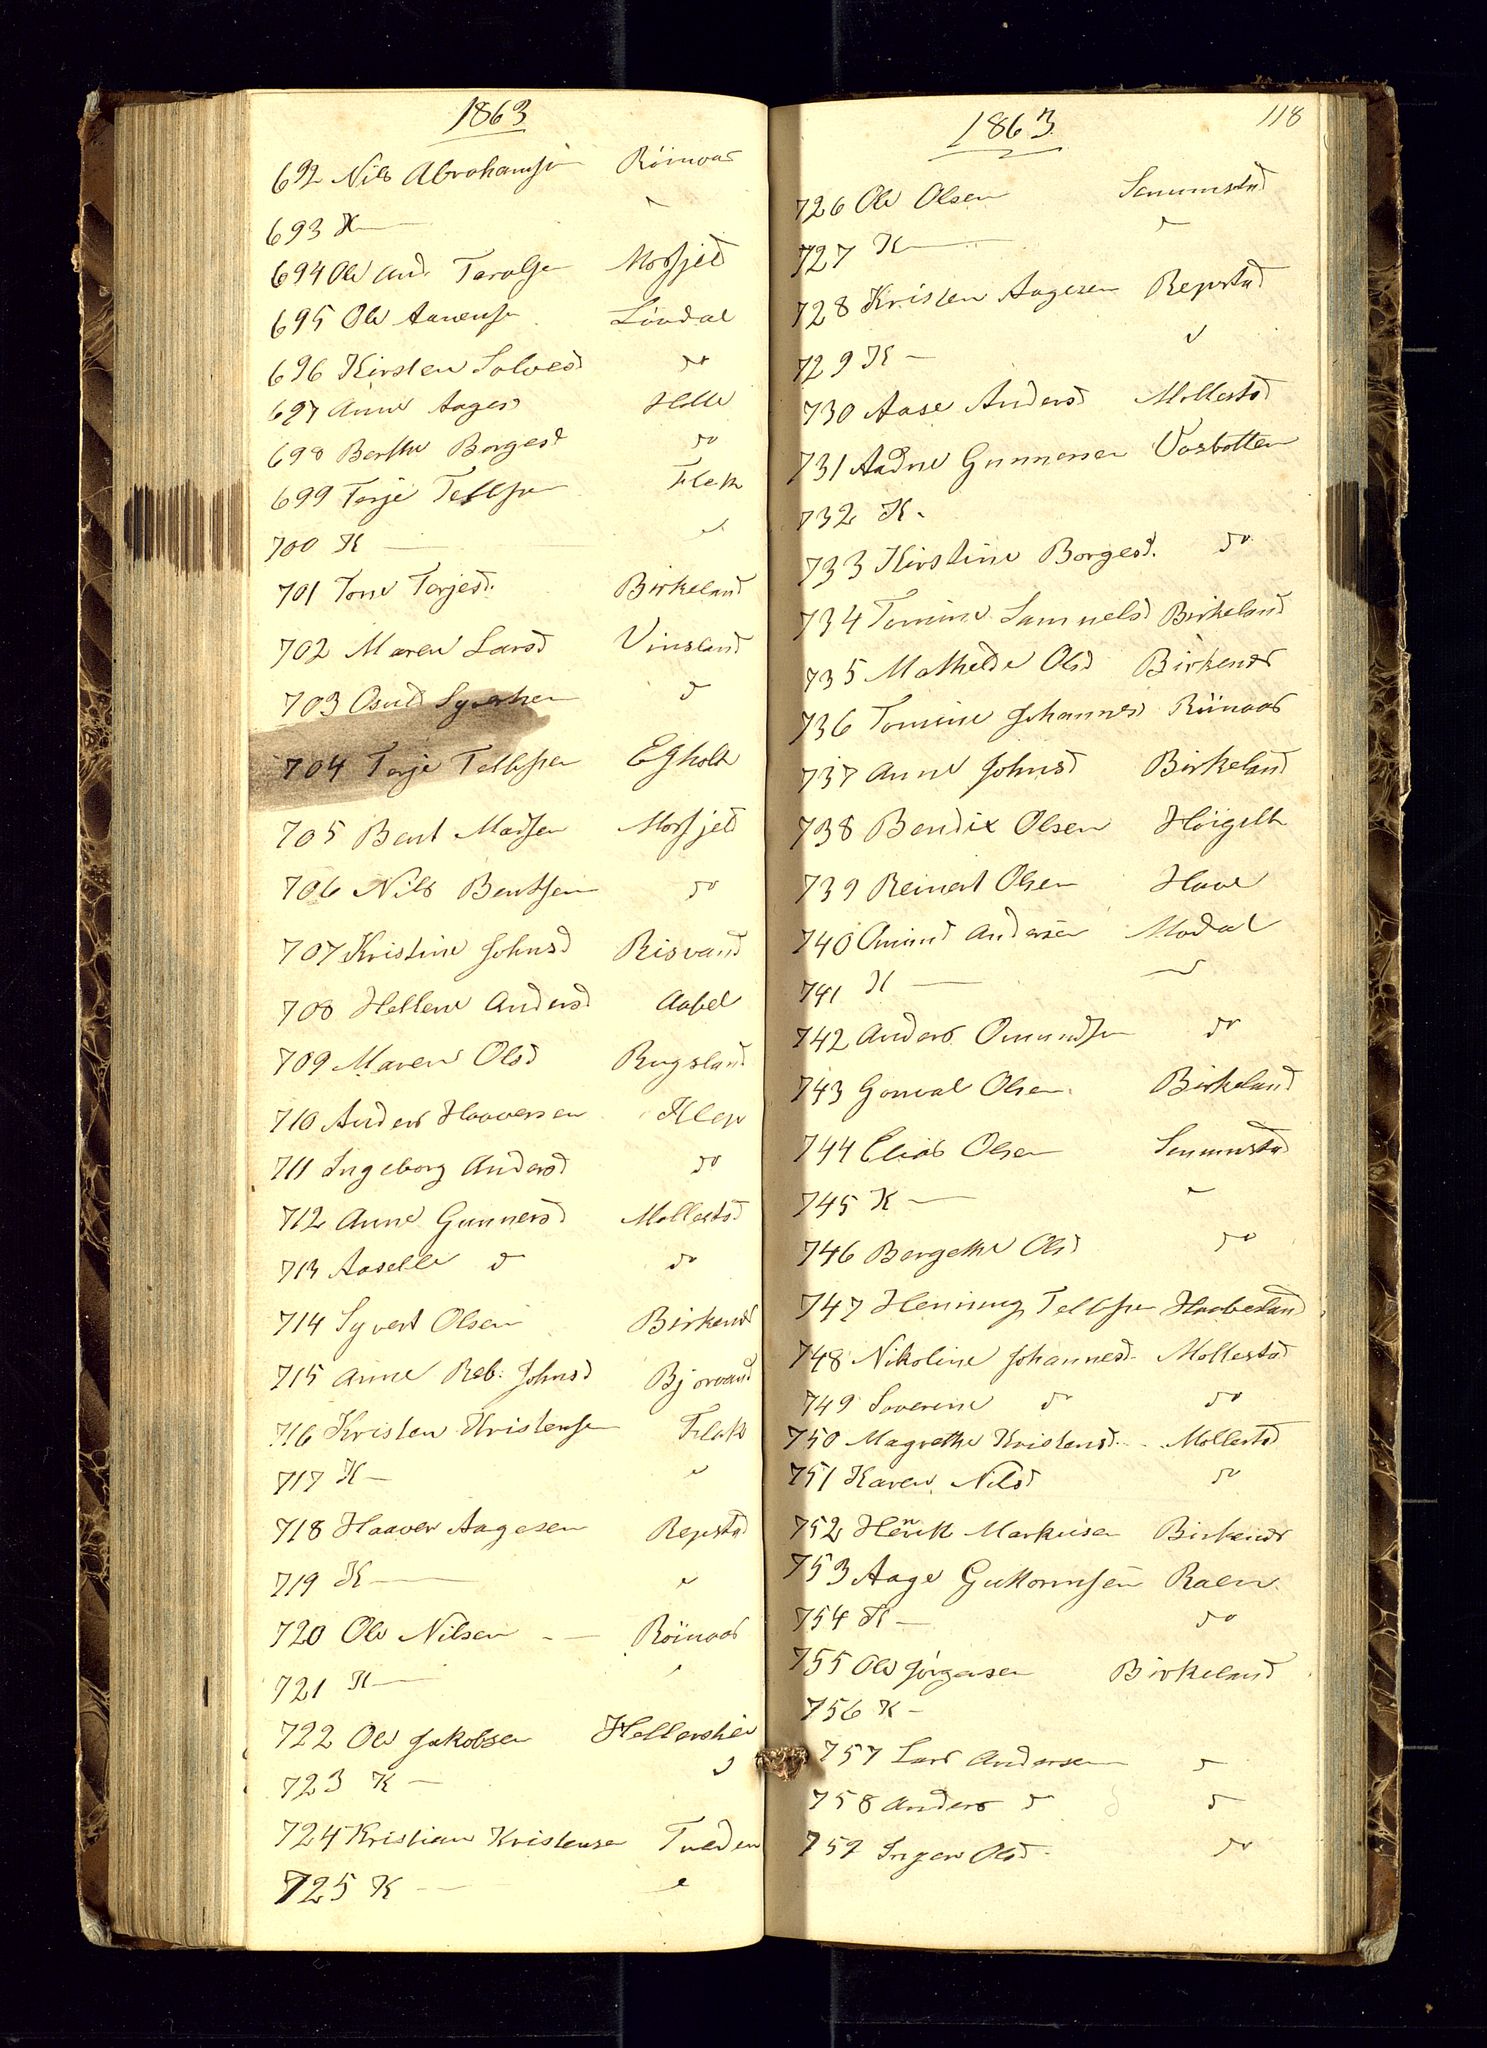 1863
692 Nils Abrahamsen Röinaas
693 K — "
694 Ole And. Taralsen Mosfjeld
695 Ole Aanensen Lövdal
696 Kirsten Solvesd do
697 Anne Aagesd Helle
698 Berthe Borgesd do
699 Terje Tellefsen Flak
700 K — "
701 Tone Terjesd. Birkeland
702 Maren Larsd Vinsland
703 Osuld Syvertsen d
704 Terje Tellefsen Egholt
705 Bent Madsen Mosfjeld
706 Nils Bentsen do
707 Kristine Johnsd Risvand
708 Hellene Andersd Aabel
709 Maren Olsd Rugsland
710 Anders Haaversen Klep
711 Ingeborg Andersd do
712 Anne Gunnersd Mollestad
713 Aaselle d do
714 Syvert Olsen Birkenes
715 Anne Reb. Johnsd Bjorvand
716 Kristen Kristensen Flak
717 K — "
718 Haaver Aagesen Repstad
719 K — "
720 Ole Nilsen — Röinaas
721 K — "
722 Ole Jakobsen Hellershei
723 K — "
724 Kristian Kristensen Tveden
725 K — "
118
1863
726 Ole Olsen Senumstad
727 K — "
728 Kristen Aagesen Repstad
729 K — "
730 Aase Andersd Mollestad
731 Aadne Gunnersen Vasbotten
732 K.
733 Kirstine Borgesd. do
734 Tomine Samuelsd Birkeland
735 Mathilde Olsd Birkenes
736 Tomine Johannesd Röinaas
737 Anne Johnsd Birkeland
738 Bendix Olsen Höigilt
739 Reinert Olsen Haave
740 Omund Andersen Modal
741 K — "
742 Anders Omundsen do
743 Gonval Olsen. Birkeland
744 Elias Olsen Senumstad
745 K — "
746 Bergethe Olsd do
747 Henning Tellefsen Haabesland
748 Nikoline Johannesd. Mollestad
749 Severine do do
750 Magrethe Kristensd. Mollestad
751 Karen Nilsd do
752 Henrik Markusen Birkenes
753 Aage Guttormsen Raen.
754 K — do
755 Ole Jörgensen Birkeland
756 K —
757 Lars Andersen d
758 Anders d d
759 Inger Olsd. do